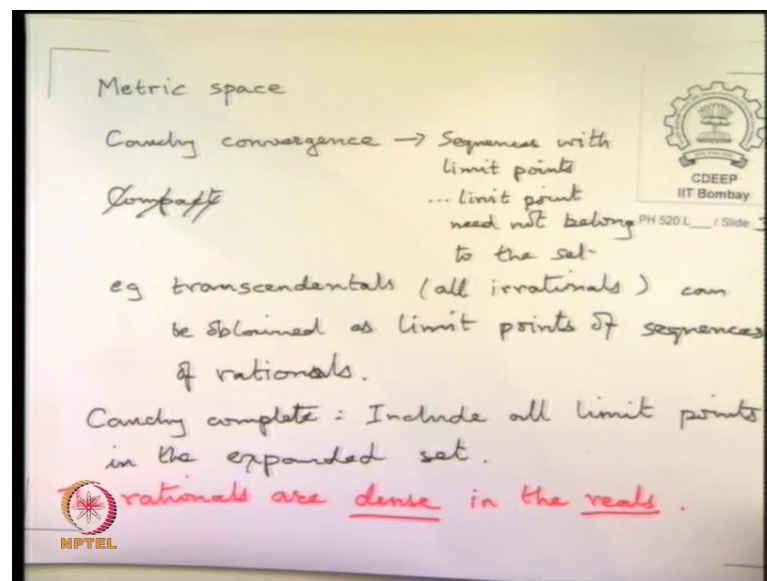 Metric space
Cauchy convergence → Sequences with
limit points
Compact
... limit point
need not belong
to the set.
CDEEP
IIT Bombay
PH 520 L___ / Slide 3
eg transcendentals (all irrationals) can
be obtained as limit points of sequences
of rationals.
Cauchy complete : Include all limit points
in the expanded set.
rationals are dense in the reals.
NPTEL